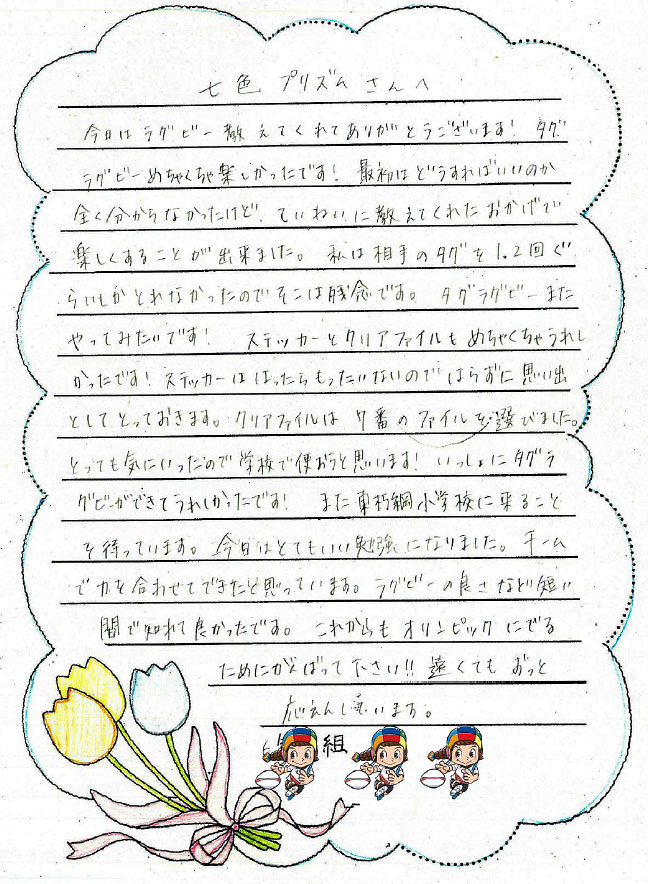 七色プリズムさんへ
今日はラグビー教えてくれてありがとうございます! タグ
ラグビーめちゃくちゃ楽しかったです! 最初はどうすればいいのか
全く分からなかったけど、ていねいに教えてくれたおかげで
楽しくすることが出来ました。 私は相手のタグを1.2回ぐ
らいしかとれなかったのでそこは残念です。 タグラグビーまた
やってみたいです! ステッカーとクリアファイルもめちゃくちゃうれし
かったです! ステッカーははったらもったいないのではらずに思い出
としてとっておきます。クリアファイルは7番のファイルを選びました。
とっても気にいったので学校で使おうと思います! いっしょにタグラ
グビーができてうれしかったです! また東朽網小学校に来ること
を待っています。今日はとてもいい勉強になりました。チーム
で力を合わせてできたと思っています。ラグビーの良さなど短い
間で知れて良かったです。これからもオリンピックにでる
ためにがんばって下さい!! 遠くてもずっと
応えんし ています。
組